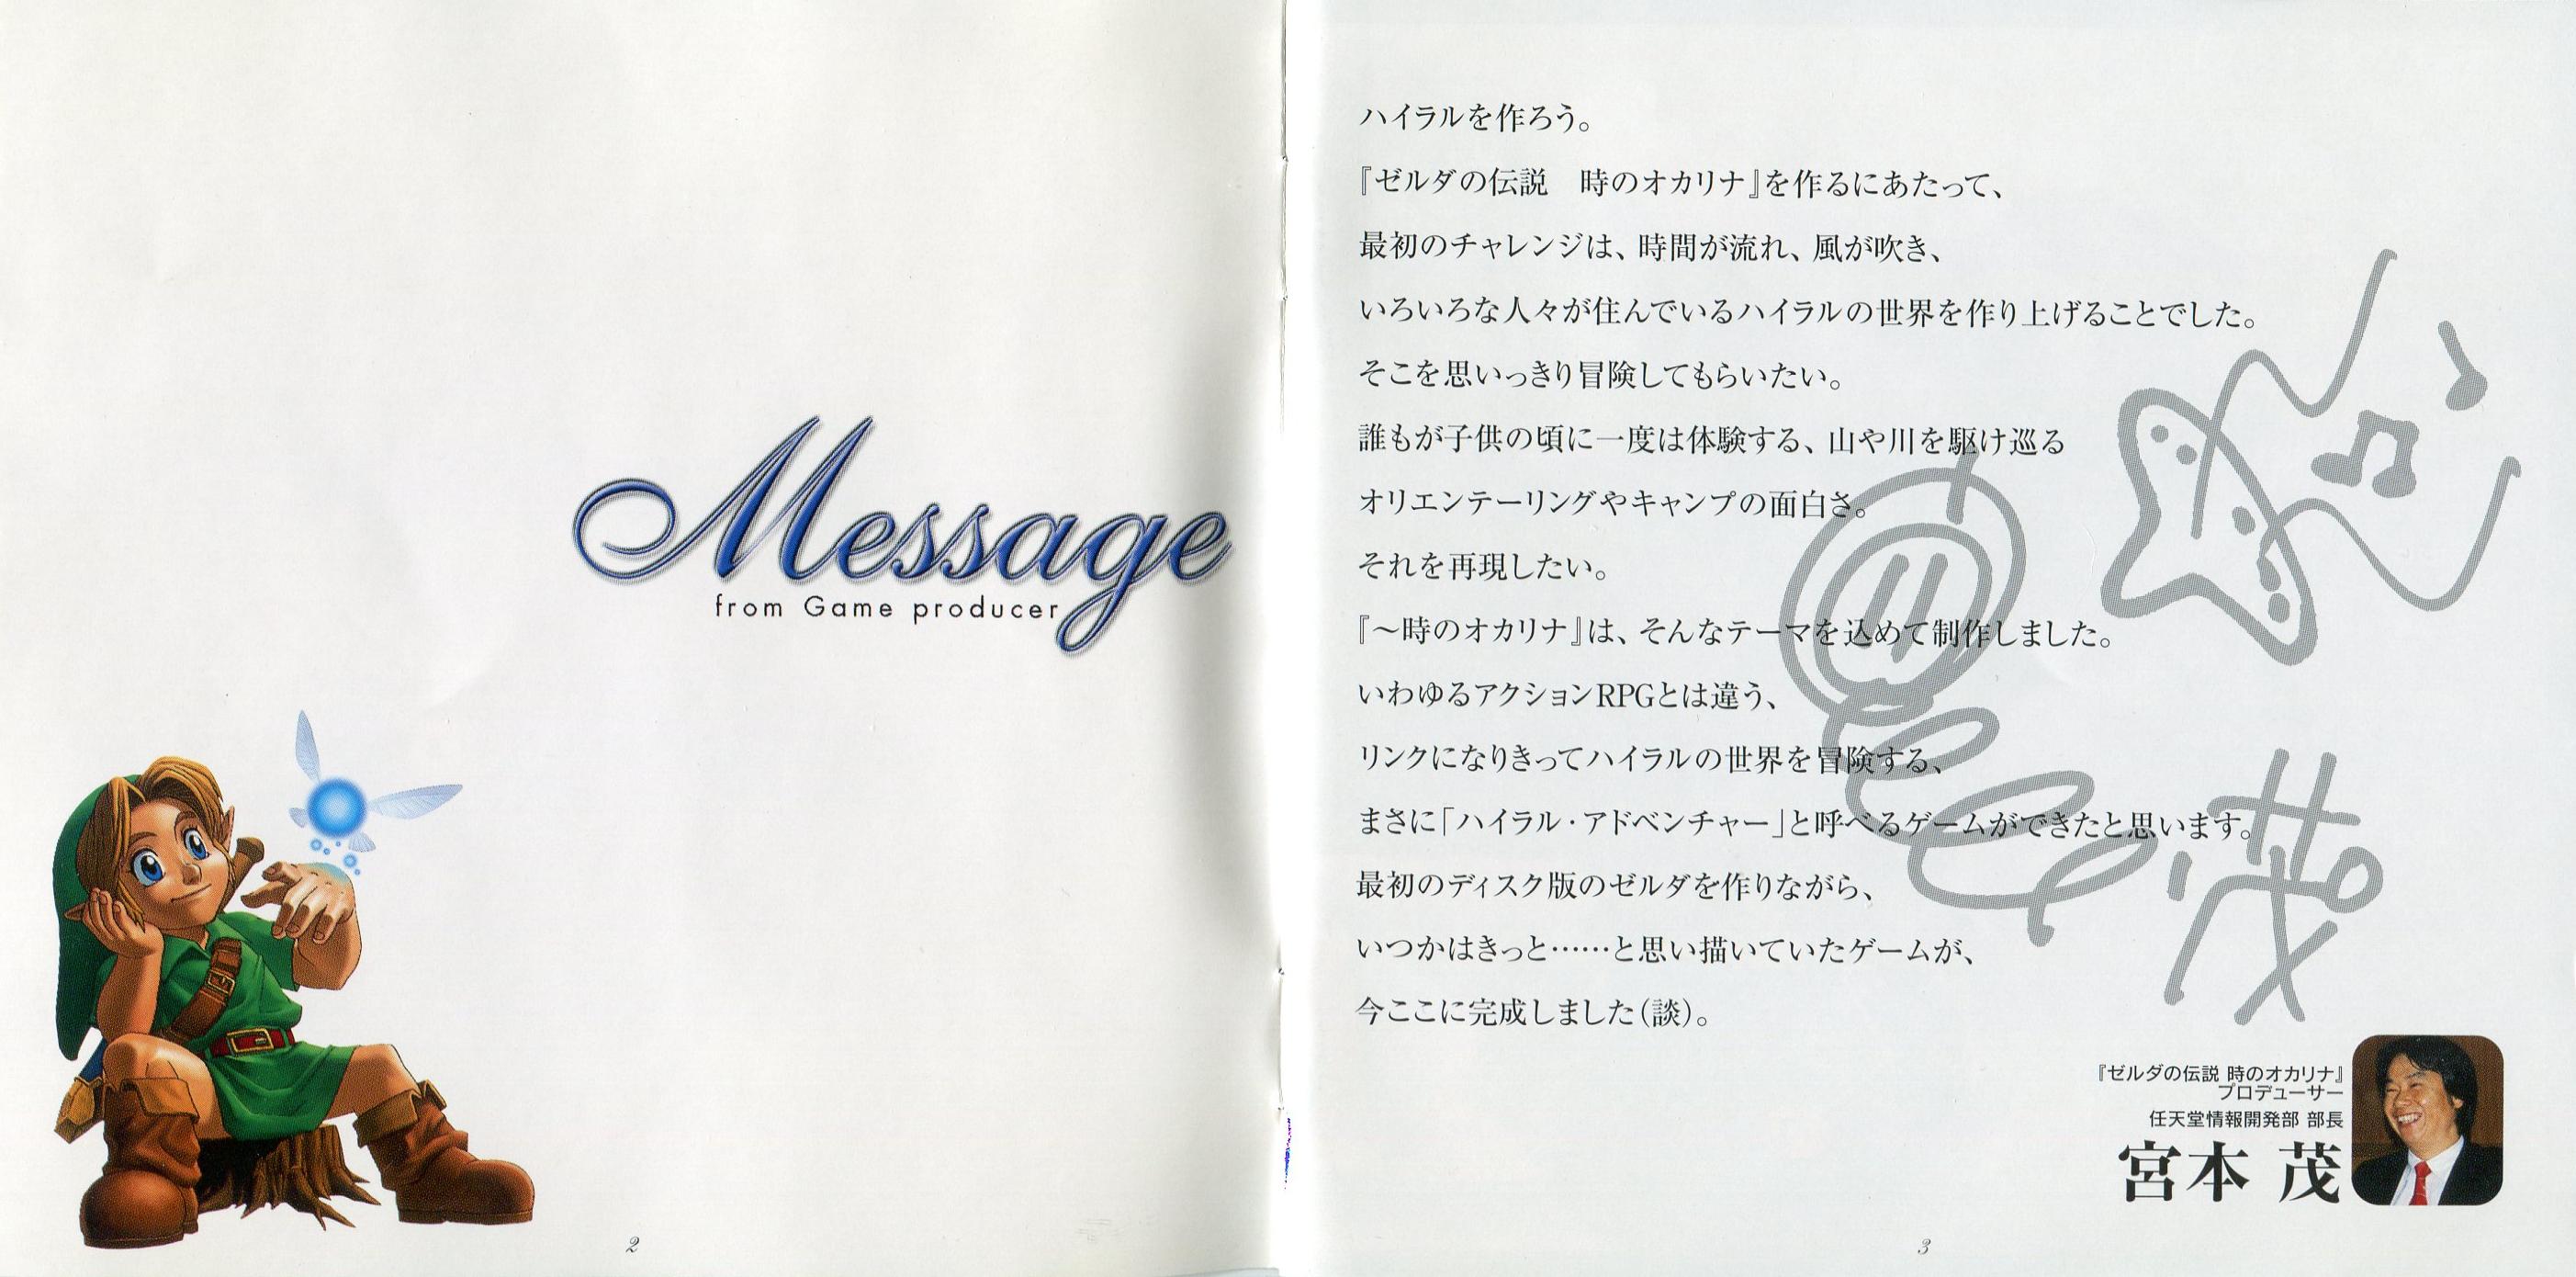 Message
from Game producer
2
ハイラルを作ろう。
『ゼルダの伝説　時のオカリナ』を作るにあたって、
最初のチャレンジは、時間が流れ、風が吹き、
いろいろな人々が住んでいるハイラルの世界を作り上げることでした。
そこを思いっきり冒険してもらいたい。
誰もが子供の頃に一度は体験する、山や川を駆け巡る
オリエンテーリングやキャンプの面白さ。
それを再現したい。
『〜時のオカリナ』は、そんなテーマを込めて制作しました。
いわゆるアクションRPGとは違う、
リンクになりきってハイラルの世界を冒険する、
まさに「ハイラル・アドベンチャー」と呼べるゲームができたと思います。
最初のディスク版のゼルダを作りながら、
いつかはきっと……と思い描いていたゲームが、
今ここに完成しました(談)。
『ゼルダの伝説 時のオカリナ』
プロデューサー
任天堂情報開発部 部長
宮本 茂
3